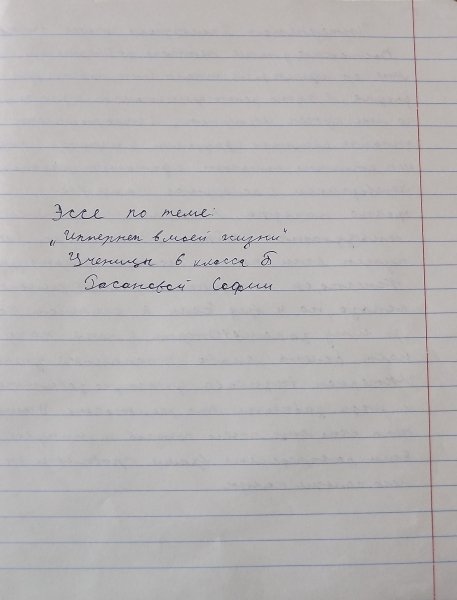 Эссе по теме:
„Интернет в моей жизни"
Ученицы 6 класса Б
Басановой Софии